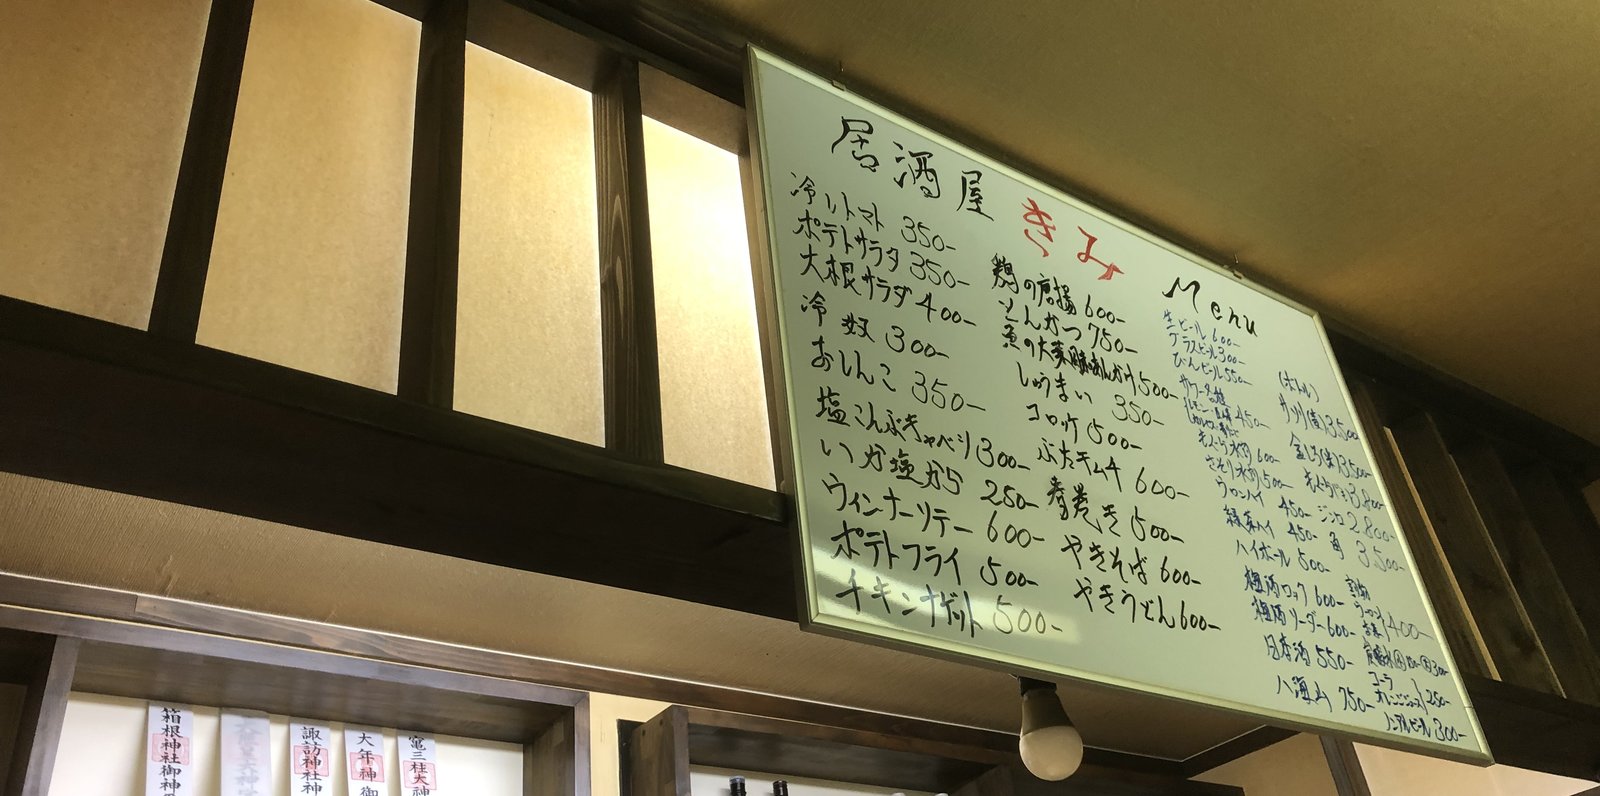 居酒屋 きみ Menu
冷しトマト 350-
ポテトサラダ 350-
大根サラダ 400-
冷奴 300-
おしんこ 350-
塩こんぶキャベツ 300-
いか塩から 250-
ウィンナーソテー 600-
ポテトフライ 500-
チキンナゲット 500-
鶏の唐揚 600-
とんかつ 750-
魚の大葉 あんかけ 500-
しゅうまい 350-
コロッケ 500-
ぶたキムチ 600-
春巻き 500-
やきそば 600-
やきうどん 600-
生ビール 600-
グラスビール 300-
びんビール 550-
サワー各種
450-
600-
500-
ウーロンハイ 450-
緑茶ハイ 450-
ハイボール 500-
梅酒ロック 600-
梅酒ソーダー 600-
日本酒 550-
八海山 750-
(ボトル)
3,500-
3,500-
3,800-
ジンロ 2,800-
角 3,500-
割物
ウーロン
400-
300-
コーラ
オレンジジュース 250-
ノンアルビール 300-
箱根神社御神
諏訪神社神
大年神御
竃三柱大神